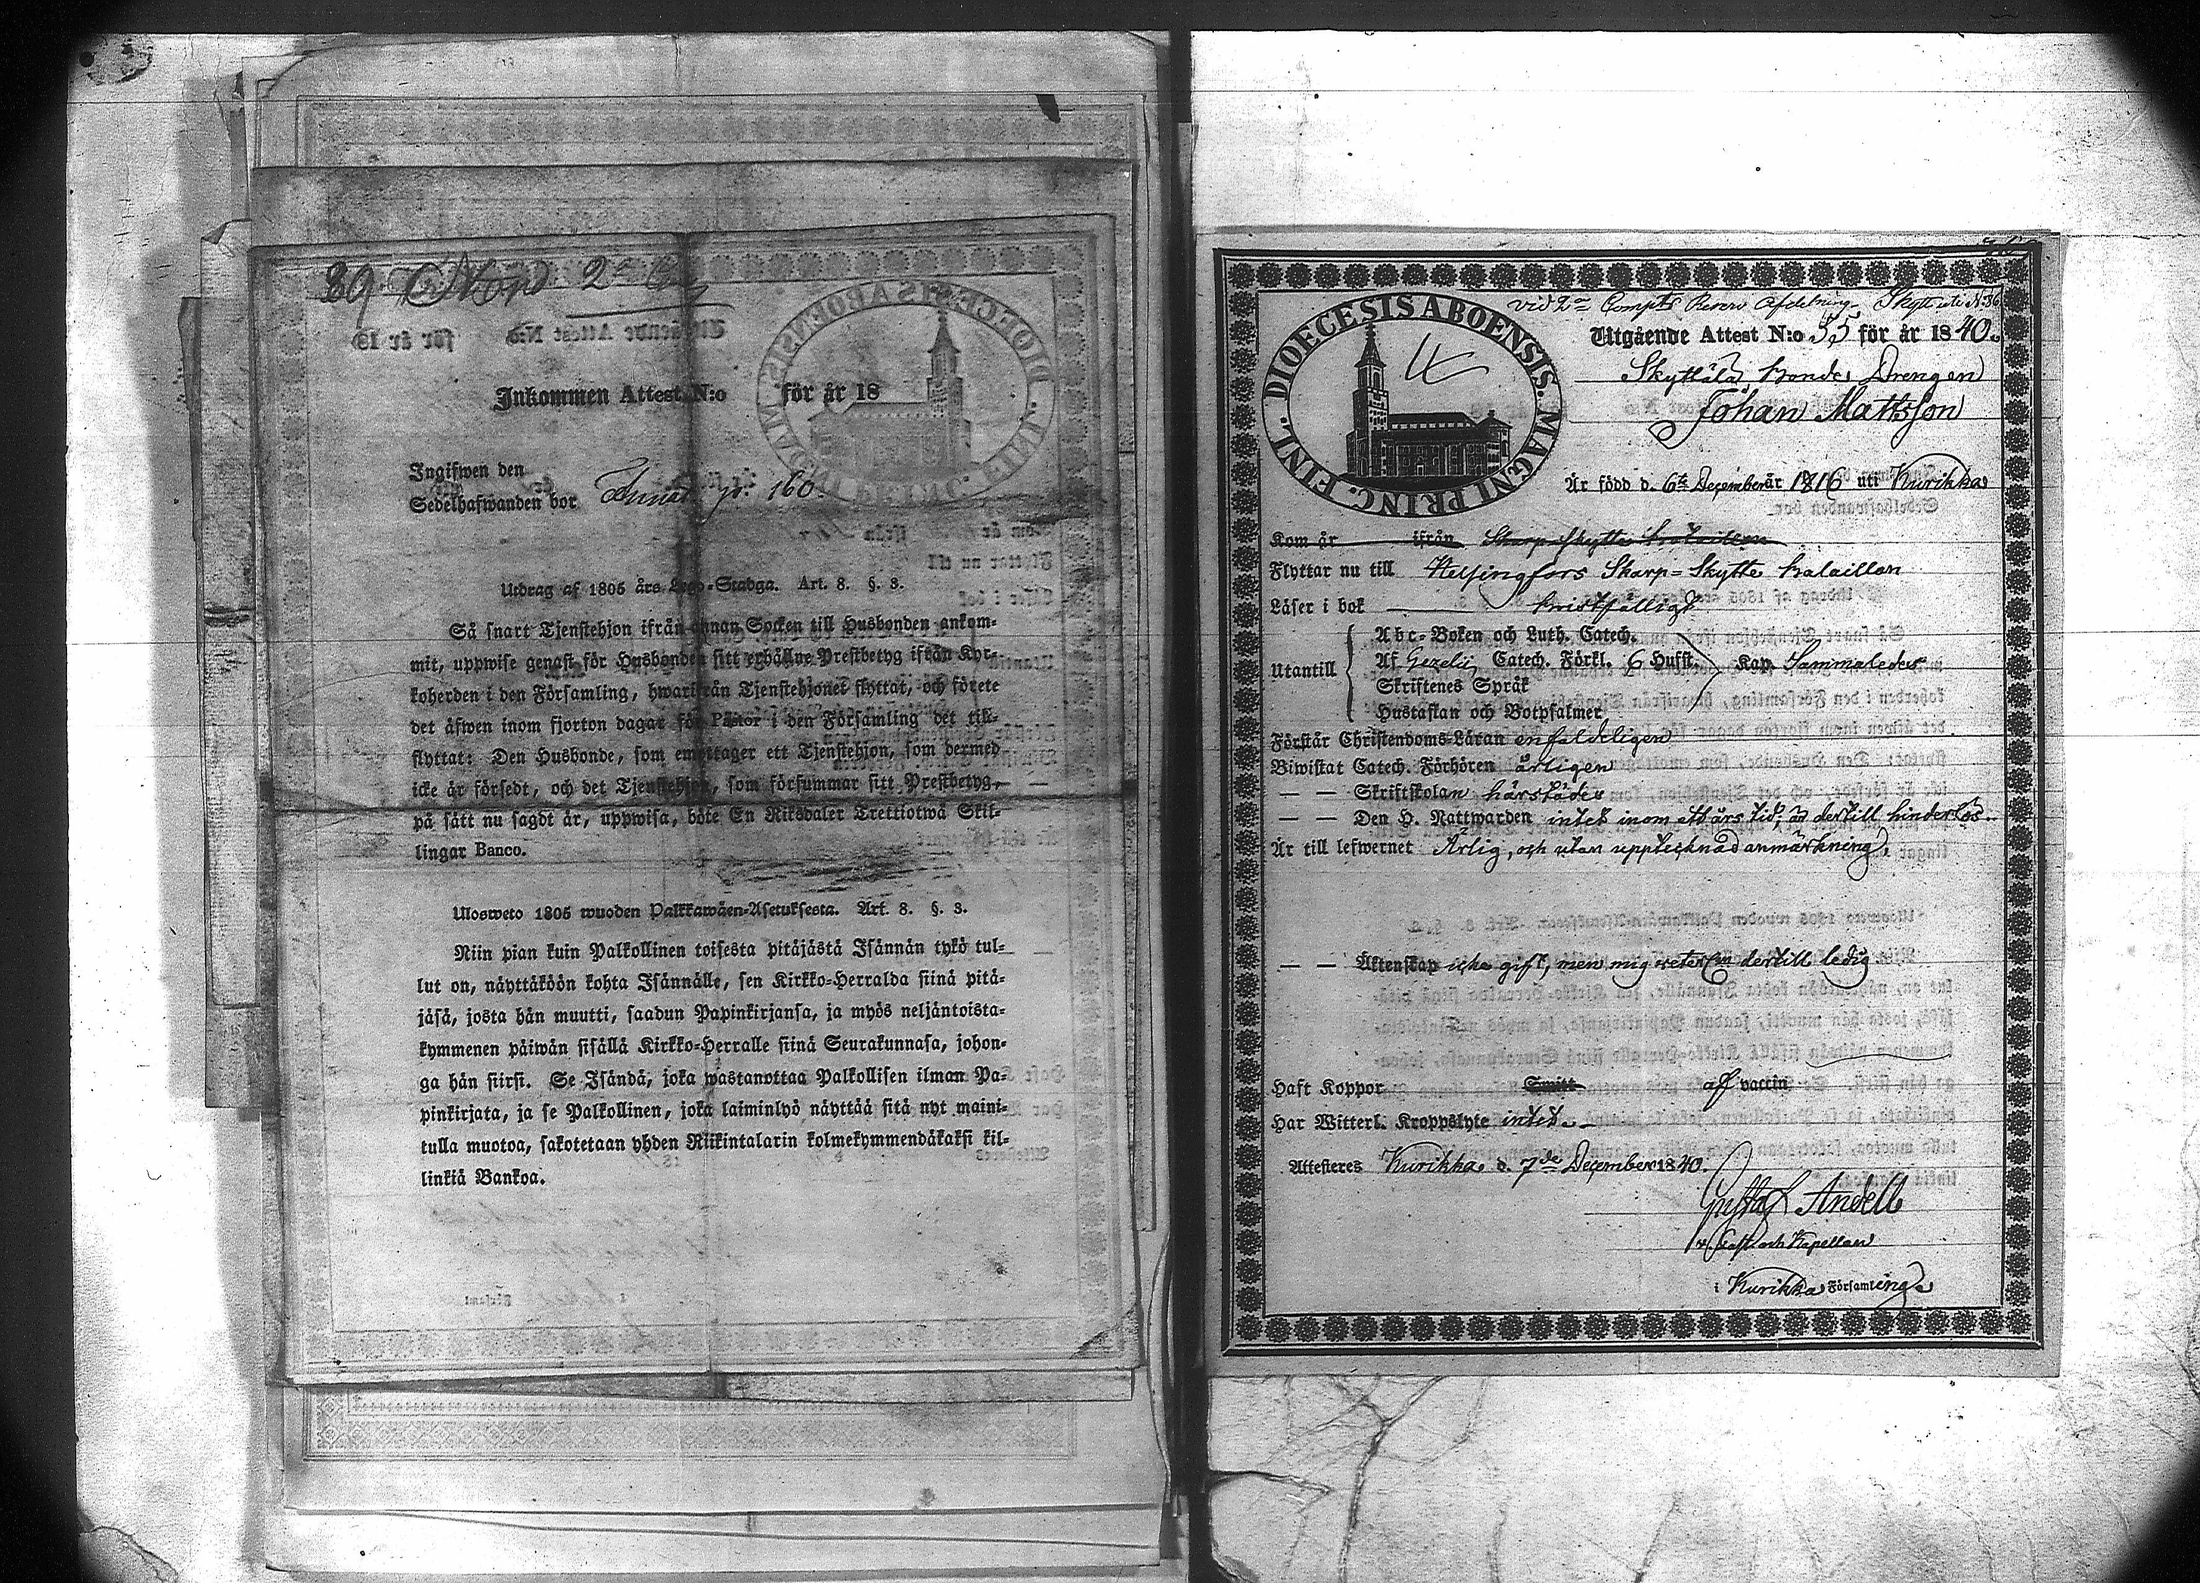 89
2
Inkommen Attest N:o för år 18
Ingifwen den
Sedelhafwanden bor 160
Utdrag af 1805 års Lego-Stadga. Art. 8. §. 3.
Så snart Tjenstehjon ifrån annan Socken till Husbonden ankom-
mit, uppwise genast för Husbonden sitt erhållne Prestbetyg ifrån Kyr-
koherden i den Församling, hwarifrån Tjenstehjonet flyttat, och förete
det äfwen inom fjorton dagar för Pastor i den Församling det till-
flyttat: Den Husbonde, som emottager ett Tjenstehjon, som dermed
icke är försedt, och det Tjenstehjon, som försummar sitt Prestbetyg,
på sätt nu sagdt är, uppwisa, böte En Riksdaler Trettiotwå Skil-
lingar Banco.
Ulosweto 1805 wuoden Palkkawäen-Asetuksesta. Art. 8. §. 3.
Niin pian kuin Palkollinen toisesta pitäjästä Isännän tykö tul-
lut on, näyttäköön kohta Isännälle, sen Kirkko-Herralda siinä pitä-
jäsä, josta hän muutti, saadun Papinkirjansa, ja myös neljäntoista-
kymmenen päiwän sisällä Kirkko-Herralle siinä Seurakunnasa, johon-
ga hän siirsi. Se Isändä, joka wastanottaa Palkollisen ilman Pa-
pinkirjata, ja se Palkollinen, joka laiminlyö näyttää sitä nyt maini-
tulla muotoa, sakotetaan yhden Riikintalarin kolmekymmendäkaksi kil-
linkiä Bankoa.
vid 2
DIOECESIS ABOENSIS. MAGNI PRINC. FINL.
Utgående Attest N:o 55 för år 1840.
Bonde Drengen
Johan Mattsson
Är född d. 6te December år 1816 uti Kurikka
Kom år ifrån Skarpskytte bataillon
Flyttar nu till Helsingfors Skarp=Skytte bataillon
Läser i bok bristfälligt
Utantill
Abc-Boken och Luth. Catech.
Af Gezelii Catech. Förkl. 6 Hufst.
Skriftenes Språk
Hustaflan och Botpsalmer
Kap. Sammaledes
Förstår Christendoms-Läran enfaldeligen
Biwistat Catech. Förhören årligen
— — Skriftskolan härstädes
— — Den H. Nattwarden intet inom ett års tid, är dertill hinderlös.
Är till lefwernet Ärlig, och utan upptecknad anmärkning,
— — Äktenskap icke gift, men mig veterl:n dertill ledig.
Haft Koppor Smitt af vaccin
Har Witterl. Kroppslyte intet
Attesteres Kurikka d. 7de December 1840.
Gustaf Andell
och Kapellan
i Kurikka Församling